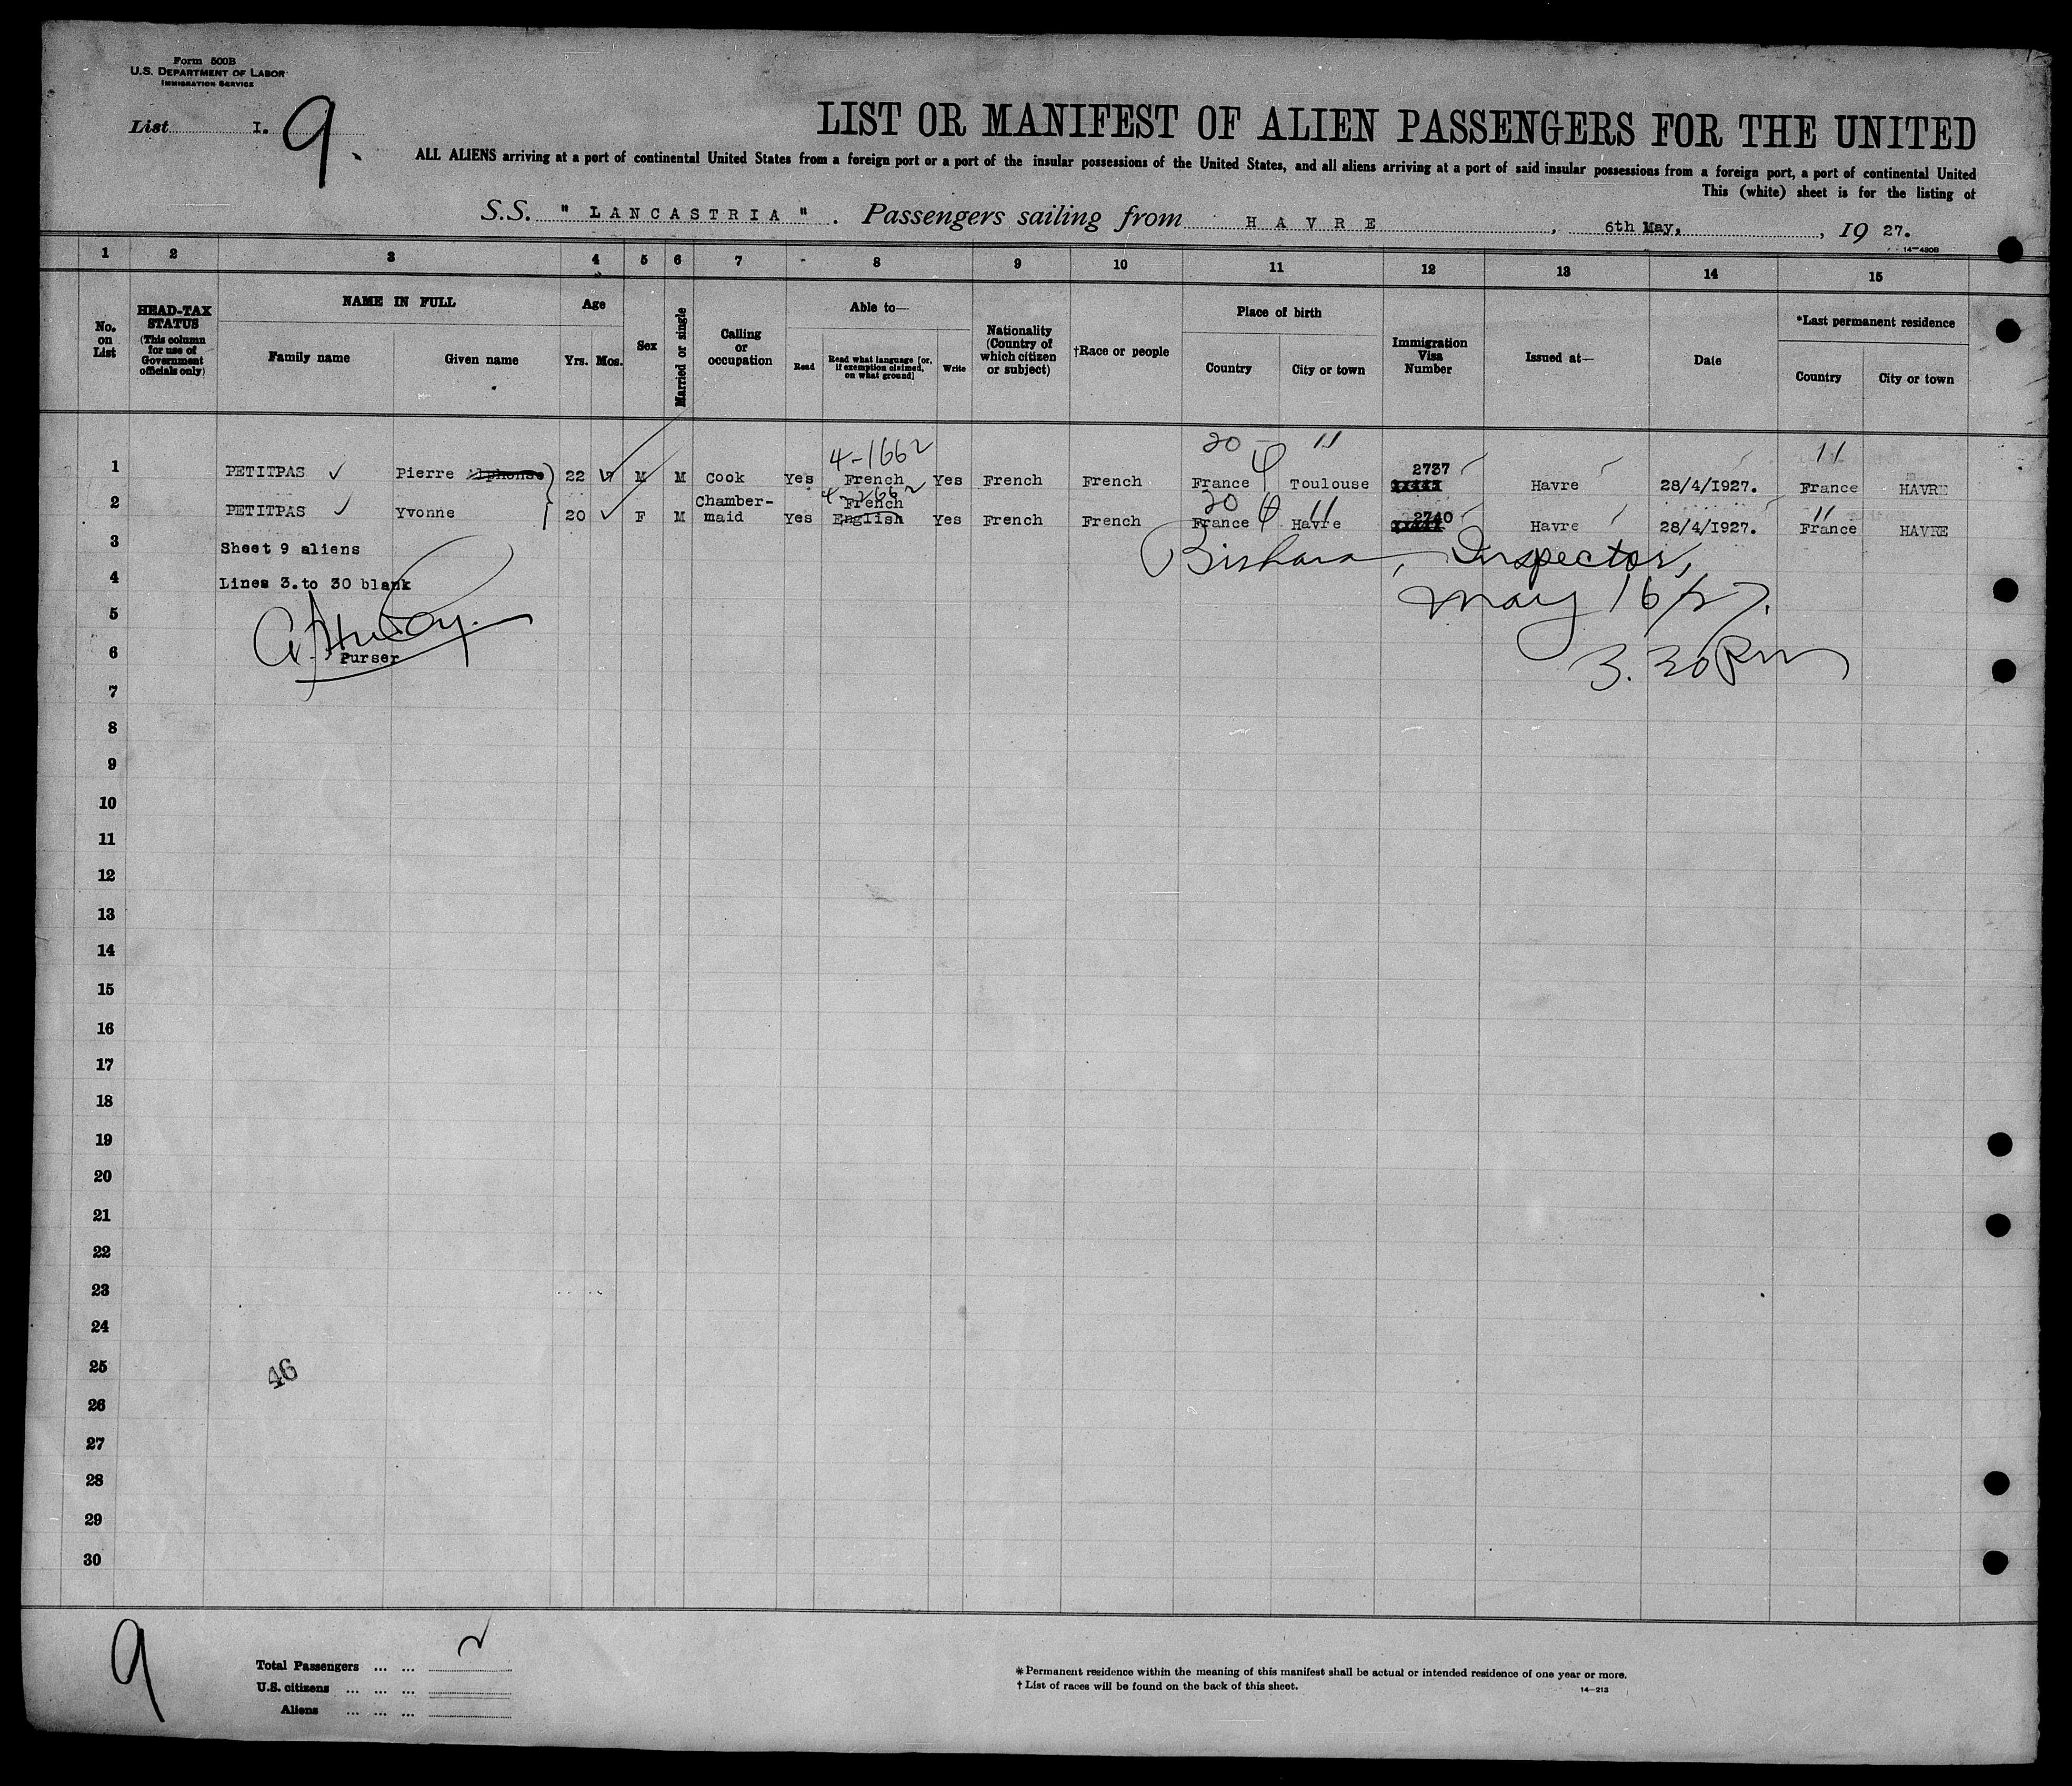 Form 500B
U.S. DEPARTMENT OF LABOR
IMMIGRATION SERVICE
List I. 9.
LIST OR MANIFEST OF ALIEN PASSENGERS FOR THE UNITED
ALL ALIENS arriving at a port of continental United States from a foreign port or a port of the insular possessions of the United States, and all aliens arriving at a port of said insular possessions from a foreign port, a port of continental United
This (white) sheet is for the listing of
S.S. " LANCASTRIA ". Passengers sailing from HAVRE, 6th May, 19 27.
14-480B
1 2 3 4 5 6 7 8 9 10 11 12 13 14 15
No. on List
HEAD-TAX STATUS (This column for use of Government officials only)
NAME IN FULL
Family name
Given name
Age
Yrs. Mos.
Sex
Married or single
Calling or occupation
Able to—
Read
Read what language [or, if exemption claimed, on what ground]
Write
Nationality (Country of which citizen or subject)
†Race or people
Place of birth
Country
City or town
Immigration Visa Number
Issued at—
Date
*Last permanent residence
Country
City or town
4-1662 20 11 11
1 PETITPAS ✓ Pierre Alphonse 22 M M Cook Yes French Yes French French France Toulouse 2737 Havre 28/4/1927. France HAVRE
4-2662 20 11 11
2 PETITPAS ✓ Yvonne 20 ✓ F M Chamber-maid Yes French English Yes French French France Havre 2740 Havre 28/4/1927. France HAVRE
3 Sheet 9 aliens
Inspector,
4 Lines 3.to 30 blank
May 16/27.
5
6 Purser
3.30 PM
7
8
9
10
11
12
13
14
15
16
17
18
19
20
21
22
23
24
25
46
26
27
28
29
30
9
Total Passengers ... ... 2
U.S. citizens ... ... ...
Aliens ... ... ...
*Permanent residence within the meaning of this manifest shall be actual or intended residence of one year or more.
†List of races will be found on the back of this sheet.
14-213